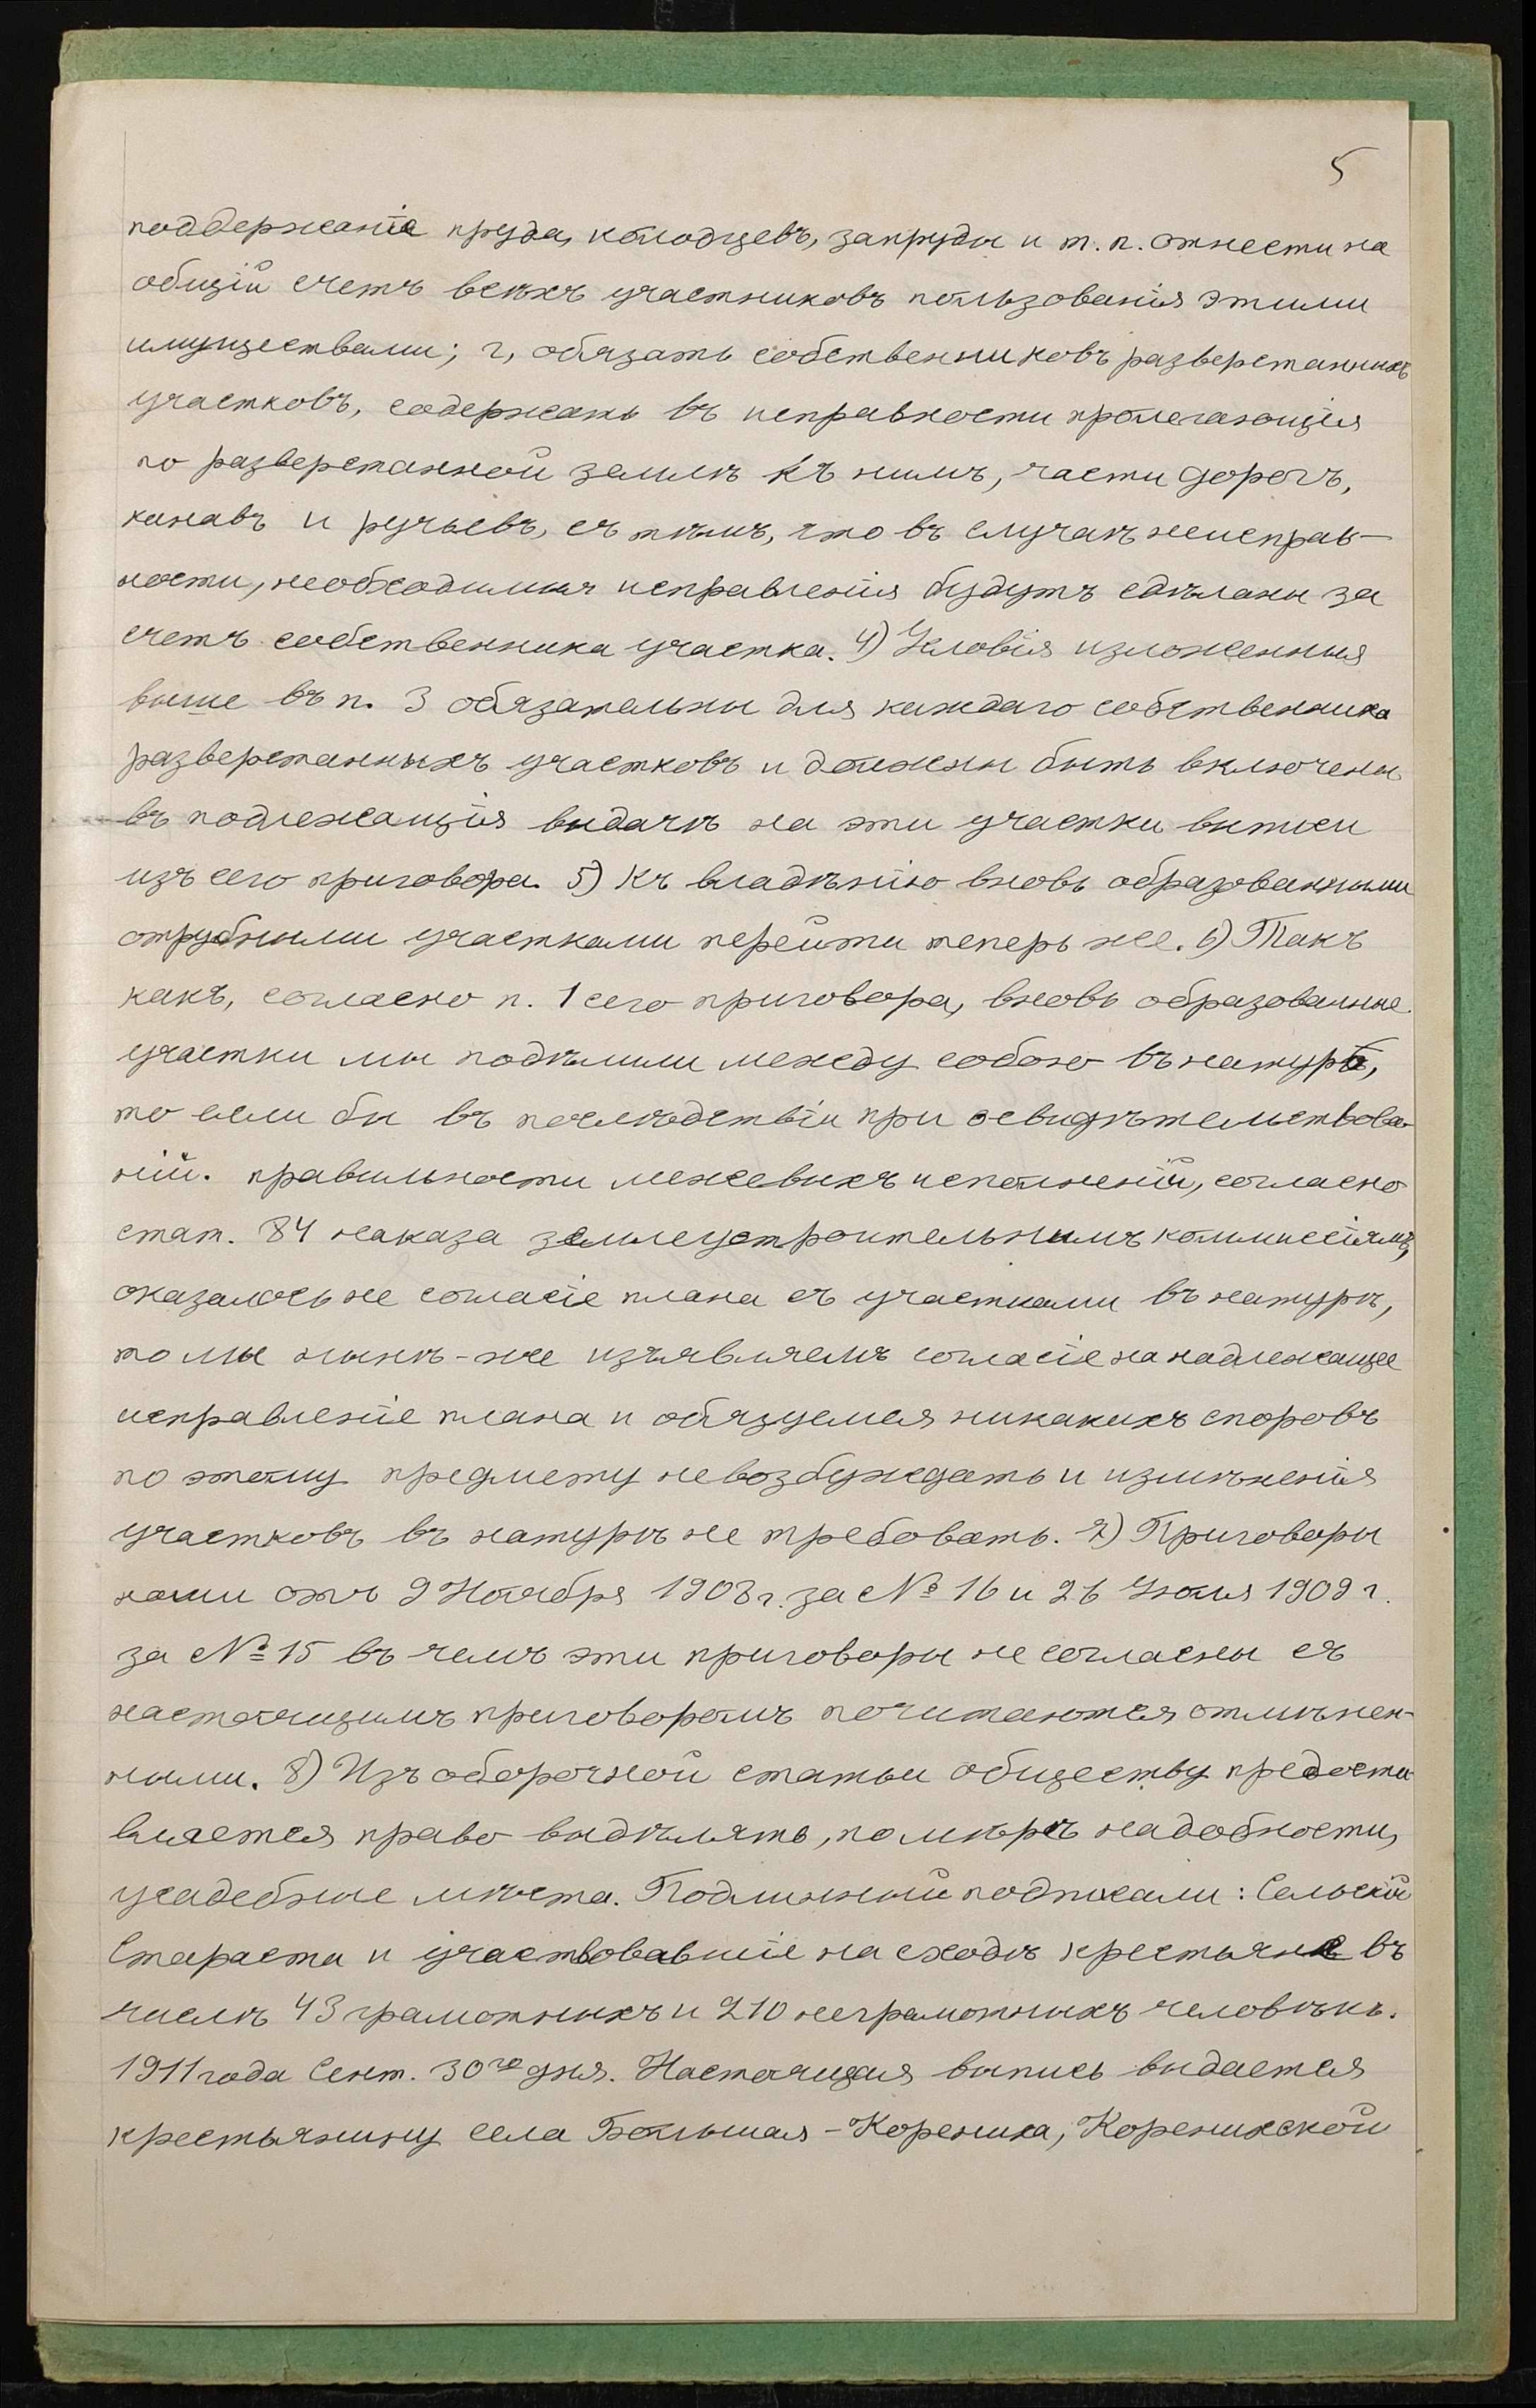 5
поддержанiе пруда, колодцевъ, запруды и т. п. отнести на
общiй счетъ всѣхъ участниковъ пользованiя этими
имуществами; г, обязать собственниковъ разверстанныхъ
участковъ, содержать въ исправности пролегающiя
по разверстанной землѣ къ нимъ, части дорогъ,
канавъ и ручьевъ, съ тѣмъ, что въ случаѣ неисправ-
ности, необходимыя исправленiя будутъ сдѣланы за
счетъ собственника участка. 4) Условiя изложенныя
выше въ п. 3 обязательны для каждаго собственника
разверстанныхъ участковъ и должны быть включены
въ подлежащiя выдачѣ на эти участки выписи
изъ сего приговора. 5) Къ владѣнiю вновь образованными
отрубными участками перейти теперь же. 6) Такъ
какъ, согласно п. 1 сего приговора, вновь образованные
участки мы подѣлили между собою въ натурѣ,
то если бы въ послѣдствiи при освидѣтельствова-
нiи. правильности межевыхъ исполненiй, согласно
стат. 84 наказа землеустроительнымъ коммиссiямъ,
оказалось не согласiе плана съ участками въ натурѣ,
то мы нынѣ-же изъявляемъ согласiе на надлежащее
исправленiе плана и обязуемся никакихъ споровъ
по этому предмету не возбуждать и измѣненiя
участковъ въ натурѣ не требовать. 7) Приговоры
наши отъ 9 Ноября 1908 г. за № 16 и 26 Iюля 1909 г.
за № 15 въ чемъ эти приговоры не согласны съ
настоящимъ приговоромъ почитаются отмѣнен-
ными. 8) Изъ оборочной статьи обществу предоста
вляется право выдѣлять, по мѣрѣ надобности,
усадебные мѣста. Подлинный подписали: Сельскiй
Стараста и участвовавшiе на сходѣ крестьяне въ
числѣ 43 грамотныхъ и 210 неграмотныхъ человѣкъ.
1911 года Сент. 30го дня. Настоящая выпись выдается
крестьянину села Большая-Корениха, Коренихской